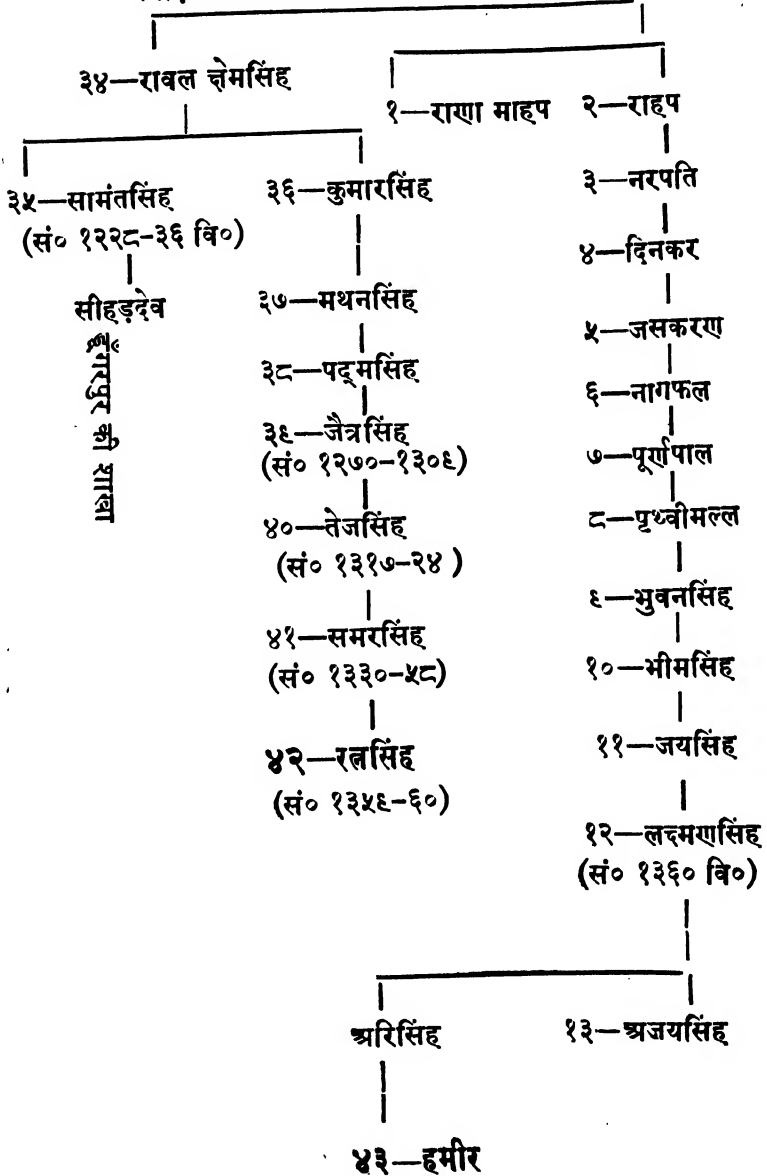 ३४—रावल क्षेमसिंह
१—राणा माहप २—राहप
३५—सामंतसिंह
(सं० १२२८-३६ वि०)
सीहड़देव
डूँगरपुर की शाखा
३६—कुमारसिंह
३७—मथनसिंह
३८—पद्मसिंह
३९—जैत्रसिंह
(सं० १२७०-१३०९)
४०—तेजसिंह
(सं० १३१७-२४ )
४१—समरसिंह
(सं० १३३०-५८)
४२—रत्नसिंह
(सं० १३५९-६०)
३—नरपति
४—दिनकर
५—जसकरण
६—नागफल
७—पूर्णपाल
८—पृथ्वीमल्ल
९—भुवनसिंह
१०—भीमसिंह
११—जयसिंह
१२—लक्ष्मणसिंह
(सं० १३६० वि०)
अरिसिंह
१३—अजयसिंह
४३—हमीर